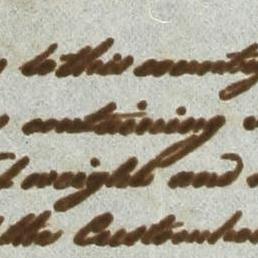 to this country
containing
weight and
the Customhou